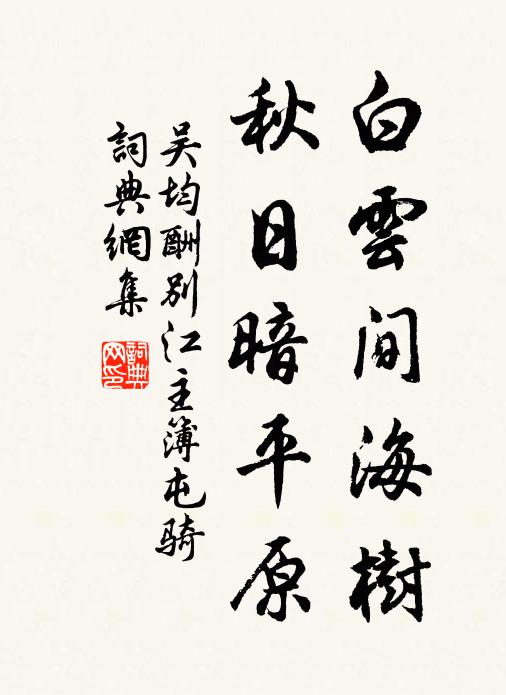 白雲間海樹
秋日暗平原
吴均酬别江主簿屯騎
詞典網集
詞典網印